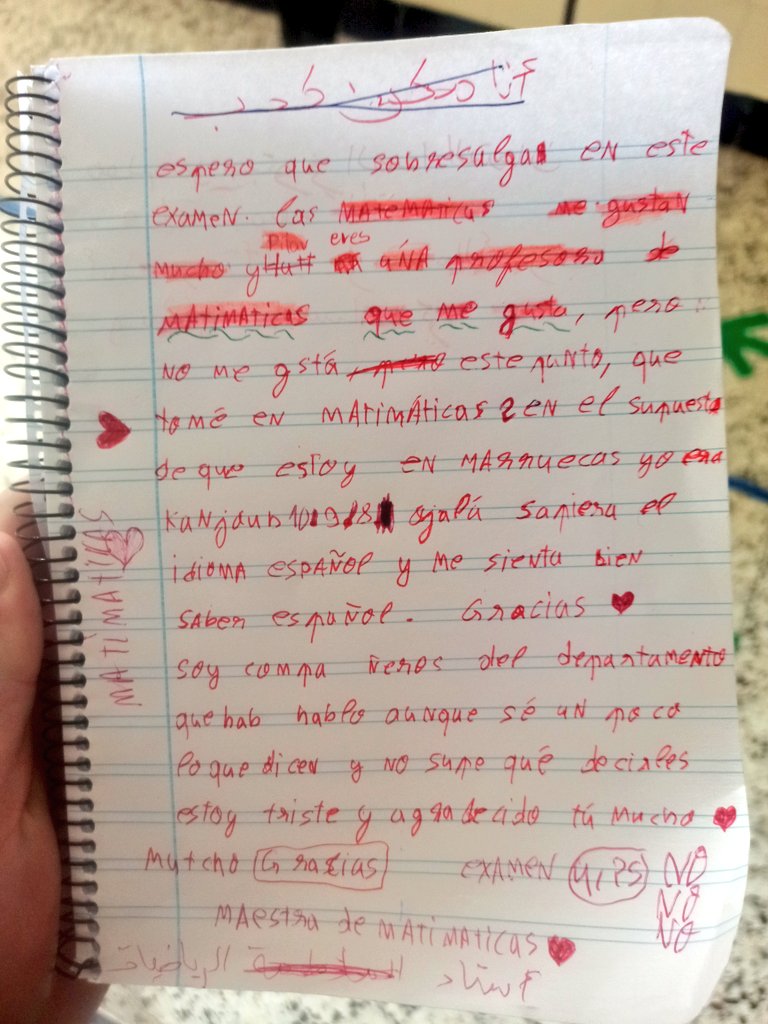 espero que sobresalga EN este
EXAMEN. las MATEMATICAS me gustan
Pilar eres
Mucho y UNA profesora de
MATIMATICAS que Me gusta, pero
NO ME gstá este punto, que
tomé EN MATIMÁTICAS 2 EN el supuesto
de que estoy EN MARRUECAS yo era
ojalá supiera el
idioMA ESPAÑOL y Me sienta bien
SABER español. Gracias ♥
soy compa ñeros del departamento
que hab hablo aunque sé UN poco
lo que dicen y NO supe qué decirles
estoy triste y agradecido tú Mucho ♥
MATIMATICAS
Mutcho Gracias EXAMEN 4,25 NO
NO
NO
MAESTRA de MATIMATICAS ♥
أستاد الرياضيات